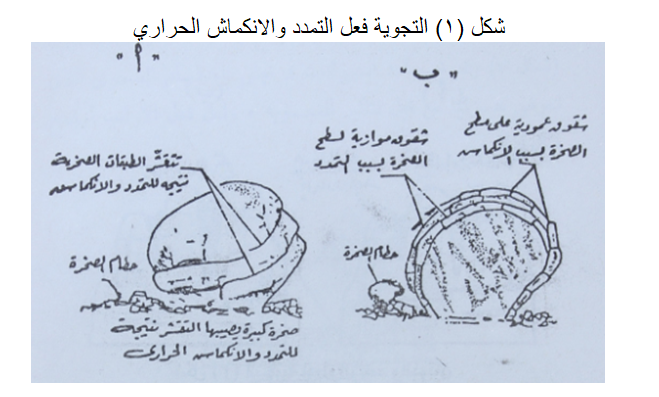 شكل (١) التجوية فعل التمدد والانكماش الحراري
"أ"
"ب"
تتقشر الطبقات الصخرية
نتيجه للتمدد والانكماس
حطام الصخرة
صخرة كبيرة يصيبها التقشر نتيجة
للتمدد والانكماس الحرارى
شقوق عمودية على سطح
الصخرة بسبب الانكماس
شقوق موازية لسطح
الصخرة بسبب التمدد
حطام الصخرة